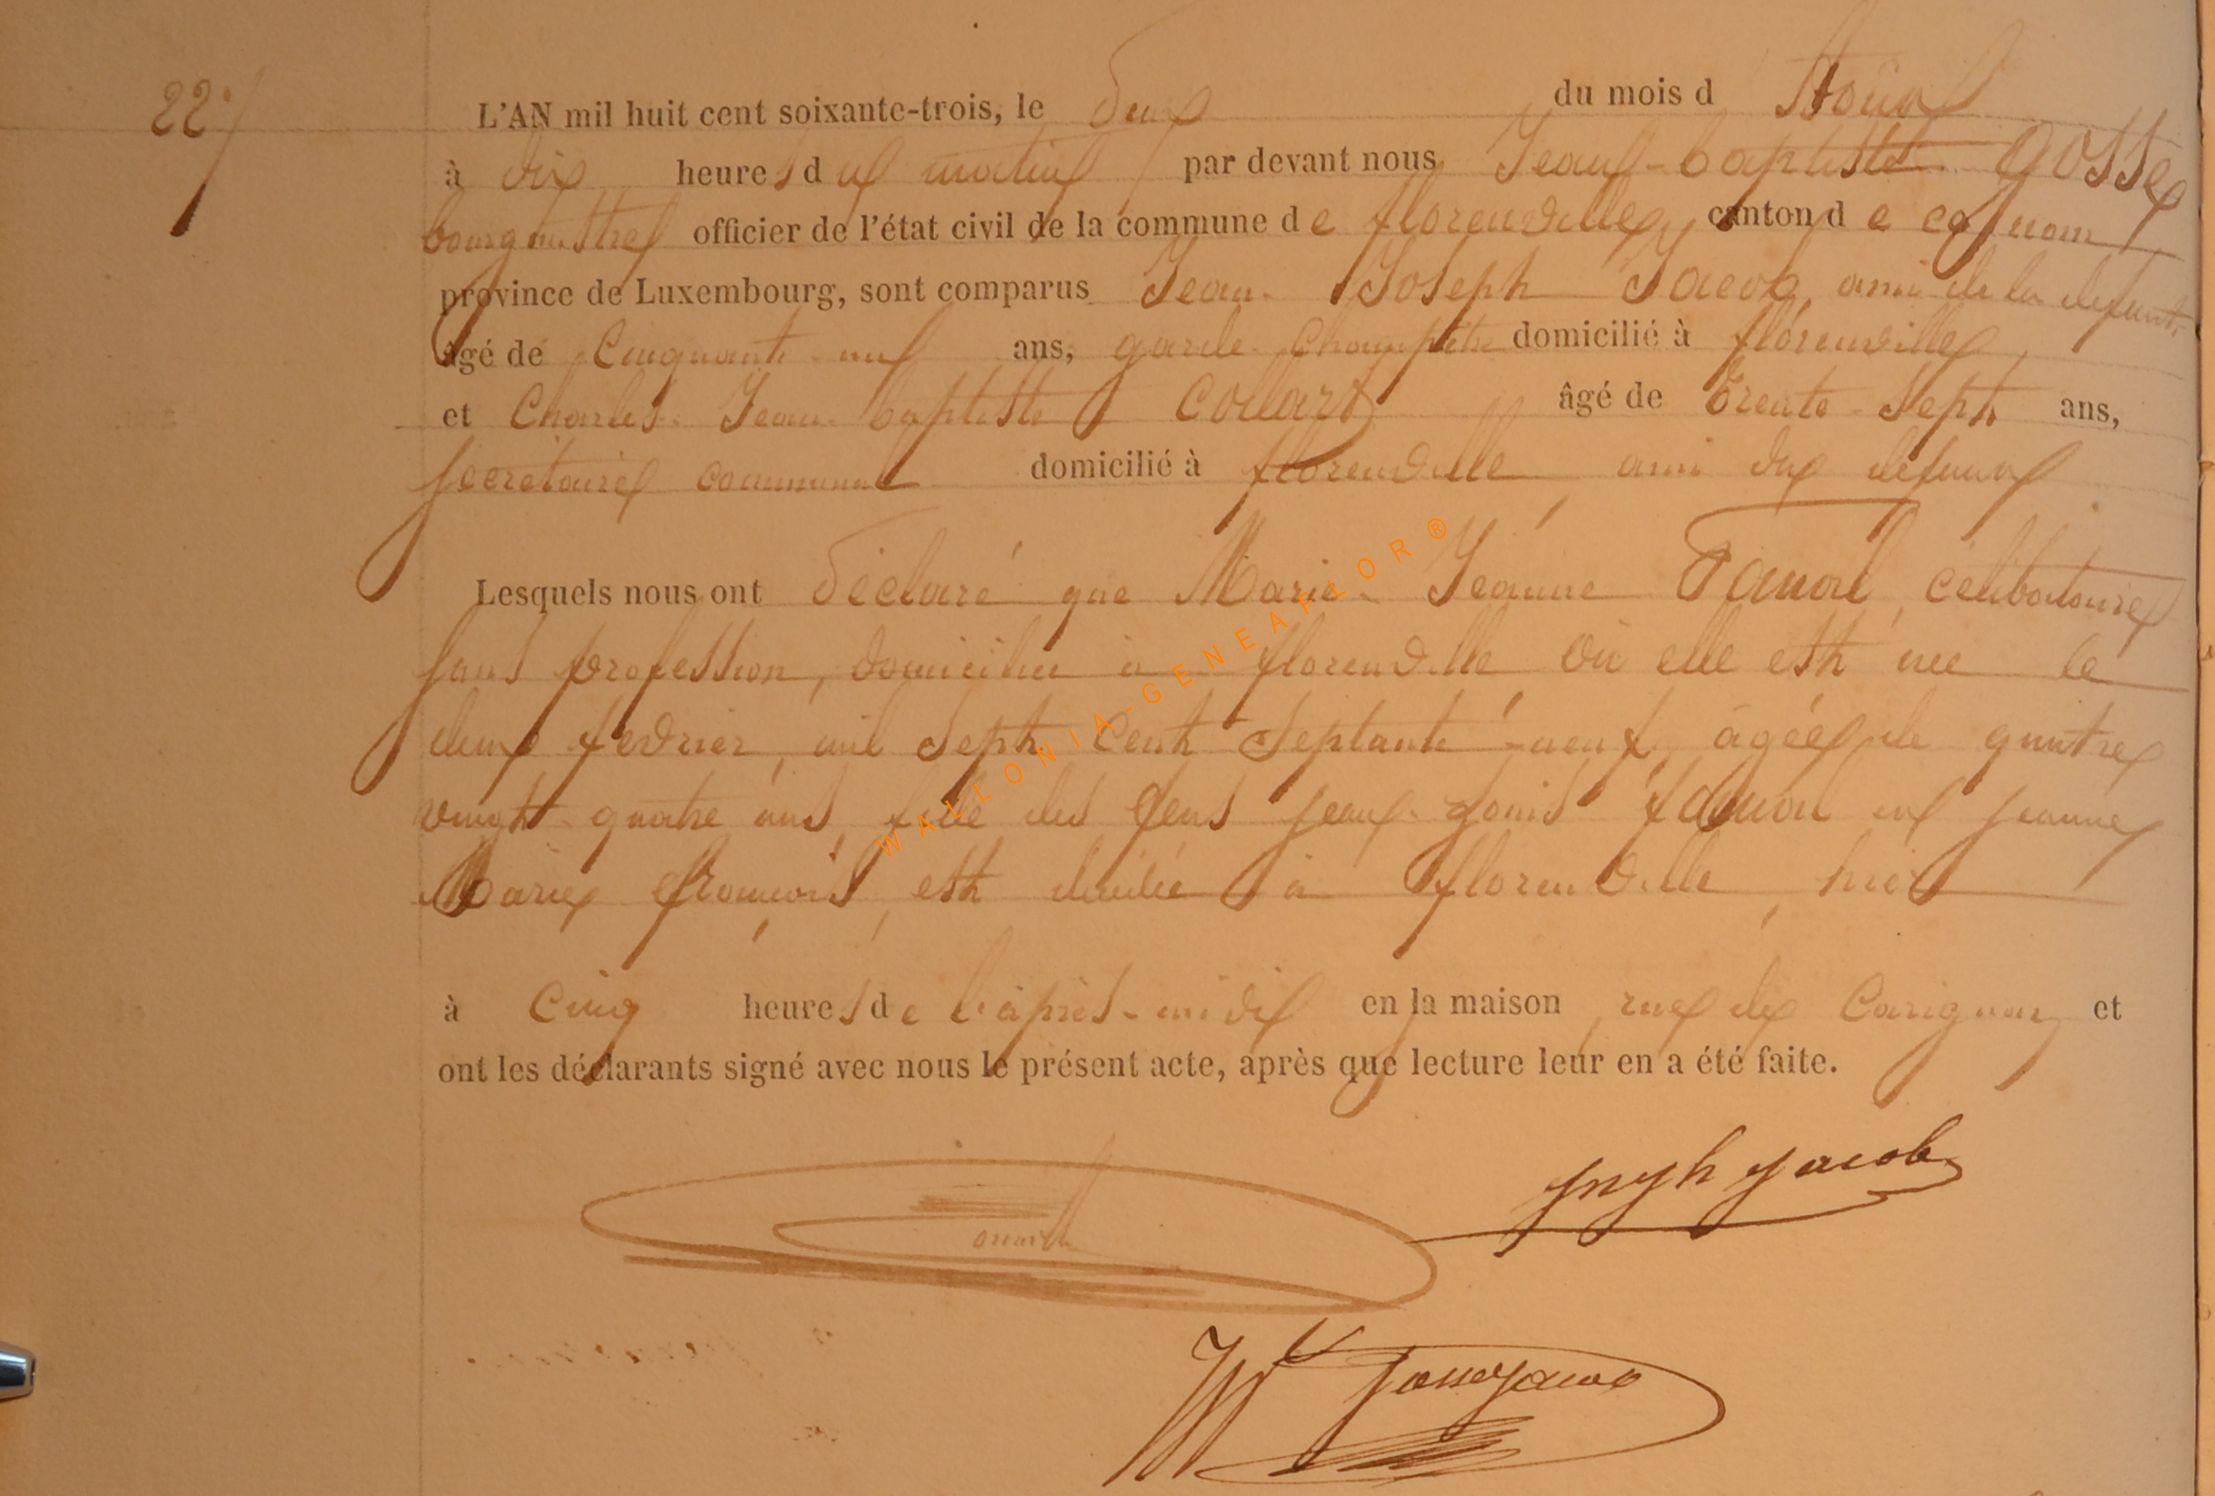 22
L'AN mil huit cent soixante-trois, le deux du mois d Août
à dix heures du matin par devant nous Jean-baptiste Gosse
bourgmestre officier de l'état civil de la commune de florenville, canton de ce nom
province de Luxembourg, sont comparus Jean Joseph Jacob, ami de la defunte
âgé de Cinquante un ans, garde Champêtre domicilié à florenville,
et Charles Jean baptiste Collard âgé de trente Sept ans,
secretaire communal domicilié à florenville, ami du défunt
Lesquels nous ont déclaré que Marie Jeanne célibataire
sans profession, domiciliée à florenville où elle est née le
deux fevrier, mil Sept Cent Septante neuf, âgée de quatre
vingt quatre ans, fille des feus Jean et Jeanne
Marie françois, est décédée à florenville, hier
à Cinq heures de l'après-midi en la maison, rue de Carignan, et
ont les déclarants signé avec nous le présent acte, après que lecture leur en a été faite.
Jacob
WALLONIA-GENEAFLOR®